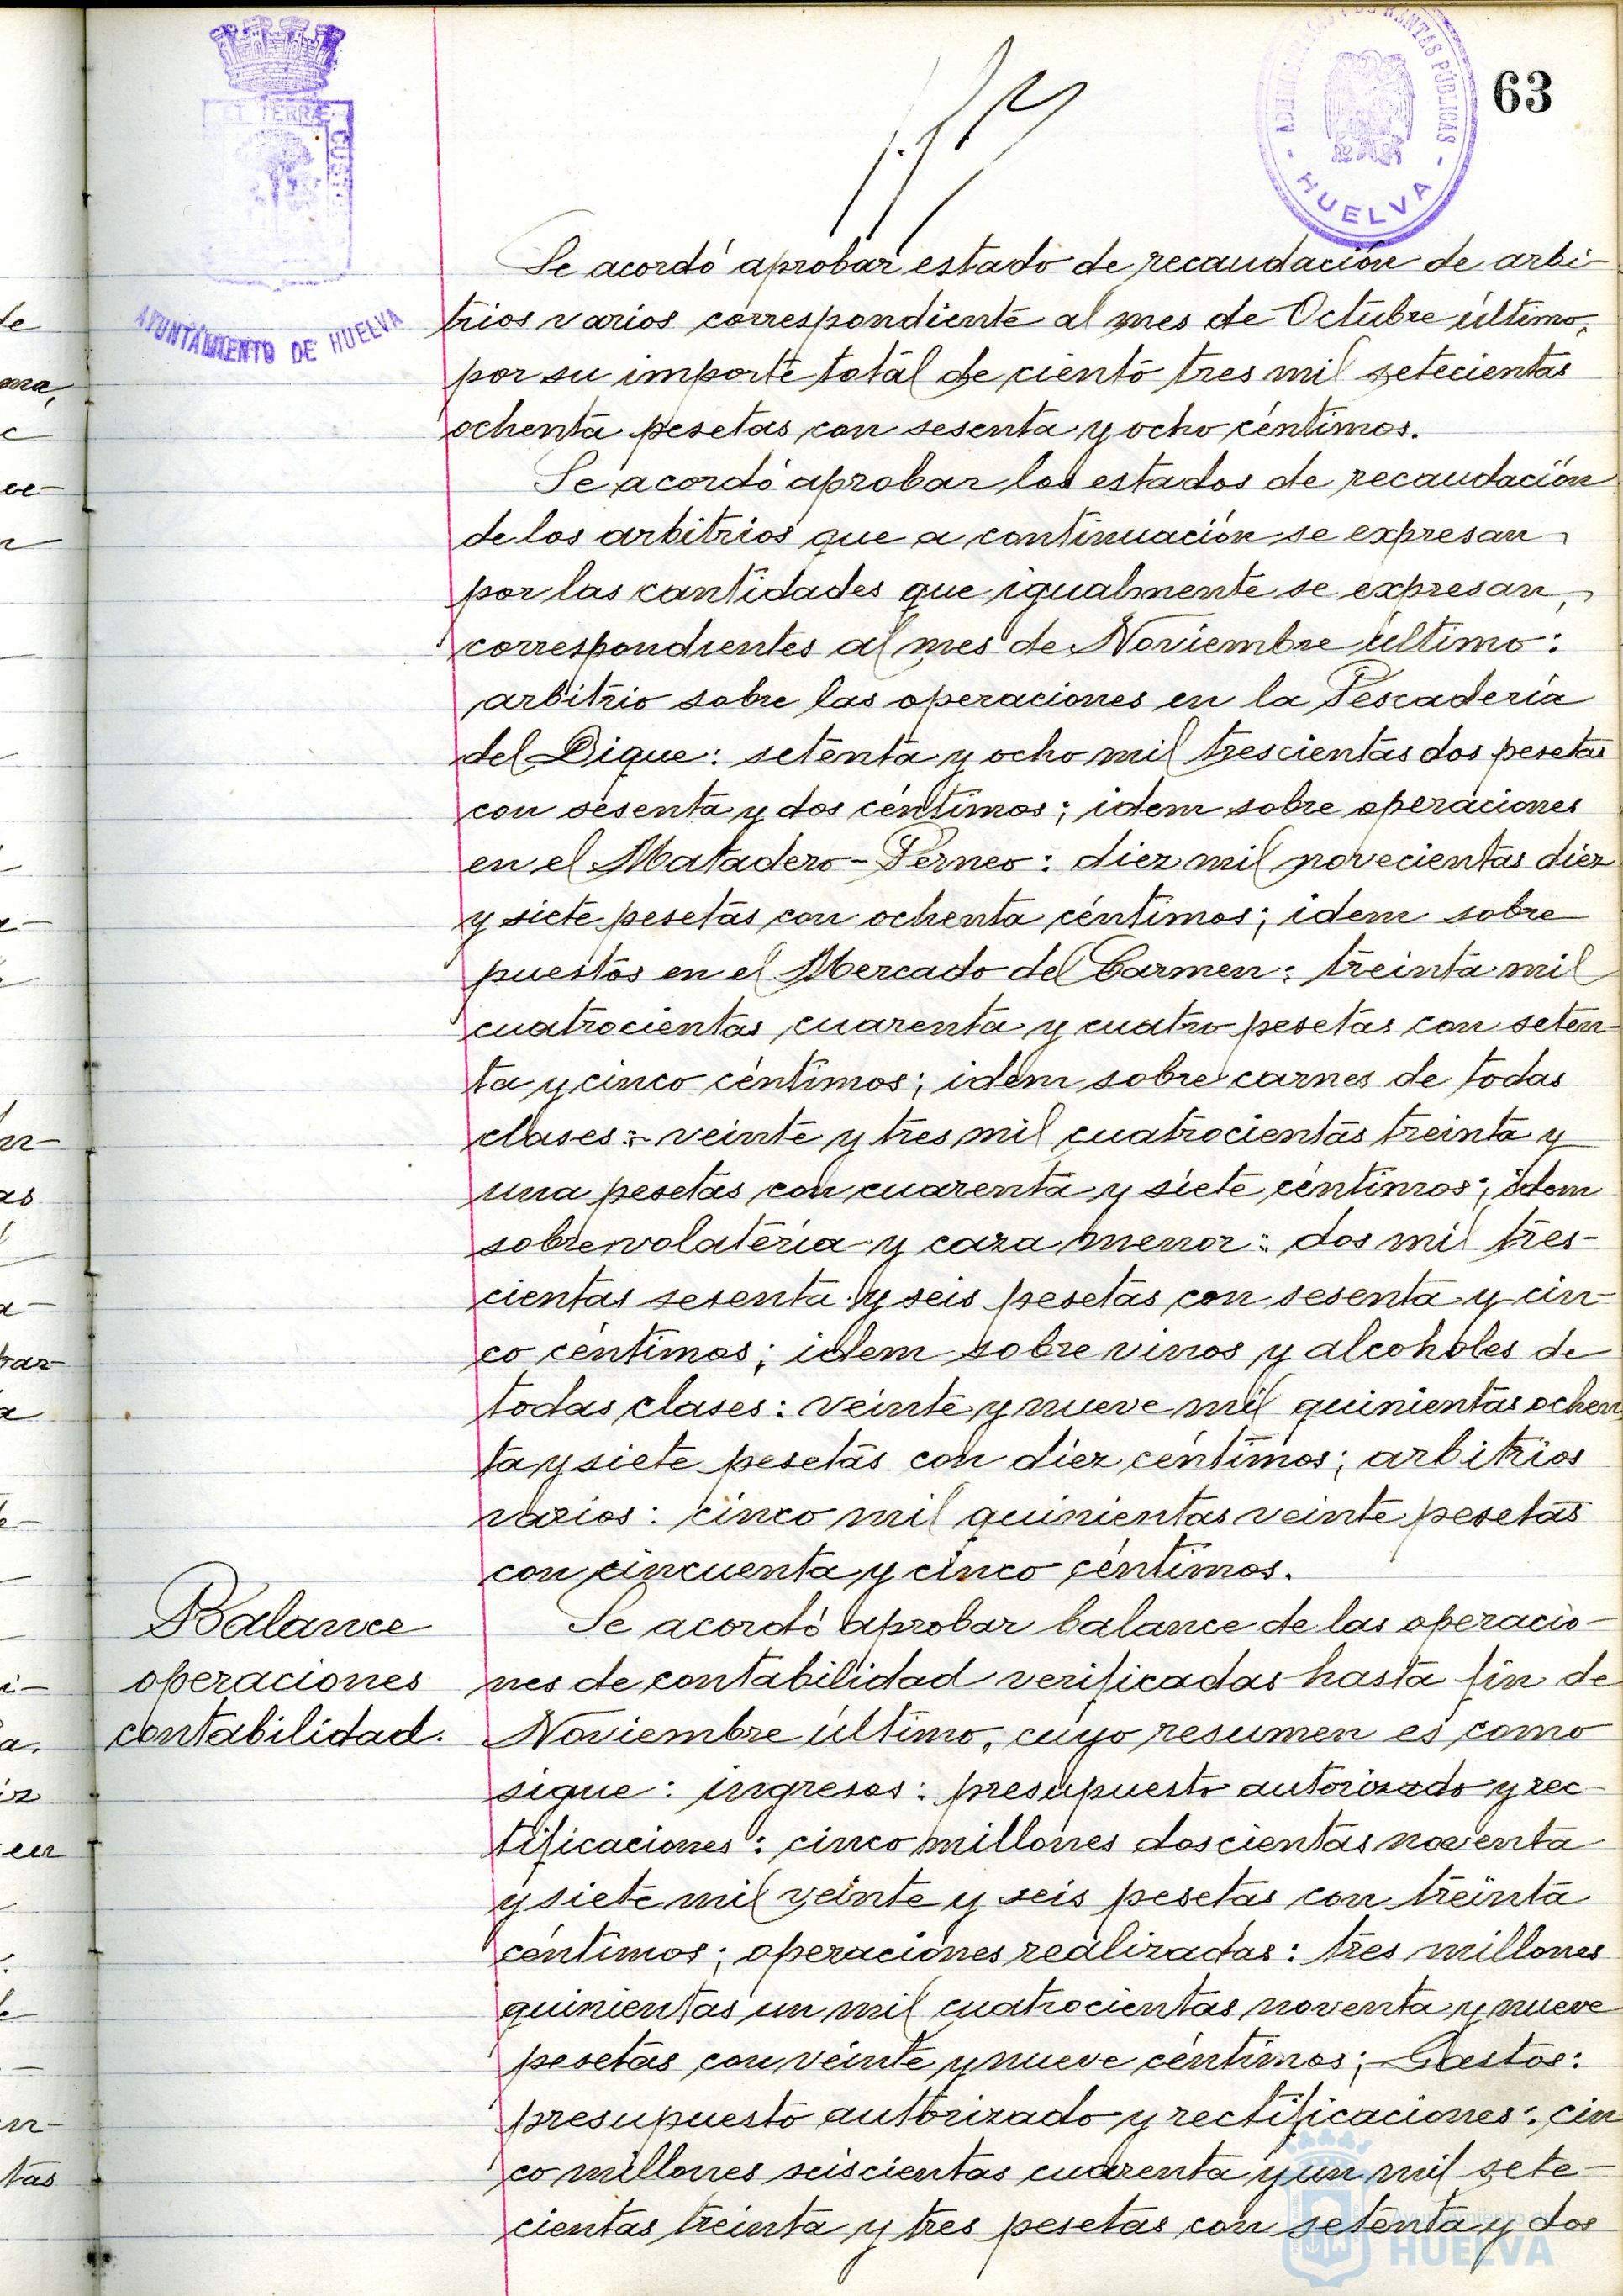 63
ET TERRÆ CUSTO
AYUNTAMIENTO DE HUELVA
RENTAS PÚBLICAS
- HUELVA -
Se acordó aprobar estado de recaudación de arbi-
trios varios correspondiente al mes de Octubre último,
por su importe total de ciento tres mil setecientas
ochenta pesetas con sesenta y ocho céntimos.
Se acordó aprobar los estados de recaudación
de los arbitrios que a continuación se expresan,
por las cantidades que igualmente se expresan,
correspondientes al mes de Noviembre último:
arbitrio sobre las operaciones en la Pescadería
del Dique: setenta y ocho mil trescientas dos pesetas
con sesenta y dos céntimos; idem sobre operaciones
en el Matadero-Perneo: diez mil novecientas diez
y siete pesetas con ochenta céntimos; idem sobre
puestos en el Mercado del Carmen: treinta mil
cuatrocientas cuarenta y cuatro pesetas con seten-
ta y cinco céntimos; idem sobre carnes de todas
clases: veinte y tres mil cuatrocientas treinta y
una pesetas con cuarenta y siete céntimos; idem
sobre volatería y caza menor: dos mil tres-
cientas sesenta y seis pesetas con sesenta y cin-
co céntimos; idem sobre vinos y alcoholes de
todas clases: veinte y nueve mil quinientas ochen
ta y siete pesetas con diez céntimos; arbitrios
varios: cinco mil quinientas veinte pesetas
con cincuenta y cinco céntimos.
Balance
operaciones
contabilidad.
Se acordó aprobar balance de las operacio-
nes de contabilidad verificadas hasta fin de
Noviembre último, cuyo resumen es como
sigue: ingresos: presupuesto autorizado y rec-
tificaciones: cinco millones doscientas noventa
y siete mil veinte y seis pesetas con treinta
céntimos; operaciones realizadas: tres millones
quinientas un mil cuatrocientas noventa y nueve
pesetas con veinte y nueve céntimos; Gastos:
presupuesto autorizado y rectificaciones: cin
co millones seiscientas cuarenta y un mil sete-
cientas treinta y tres pesetas con setenta y dos
Ayuntamiento de
HUELVA